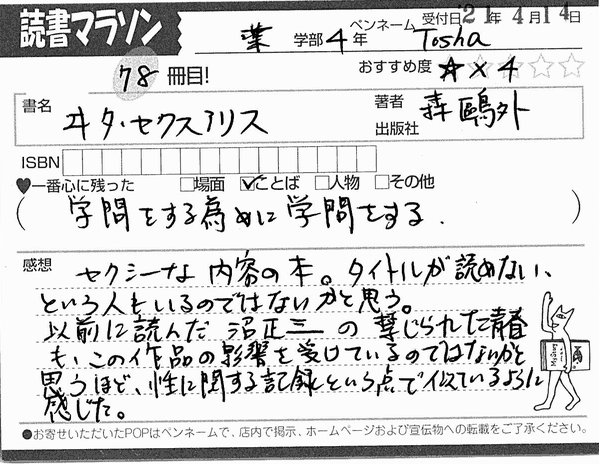 読書マラソン
薬 学部 4 年 ペンネーム Tosha 受付日 '21年 4月 14日
78 冊目! おすすめ度 ★×4
書名 ヰタ・セクスアリス 著者 森鷗外
出版社
ISBN
♥一番心に残った □場面 ☑ことば □人物 □その他
( 学問をする為めに学問をする. )
感想 セクシーな内容の本。タイトルが読めない、
という人もいるのではないかと思う。
以前に読んだ沼正三の禁じられた青春
も、この作品の影響を受けているのではないかと
思うほど、性に関する記録という点で似ているように
感じた。
●お寄せいただいたPOPはペンネームで、店内で掲示、ホームページおよび宣伝物への転載をご了承ください。